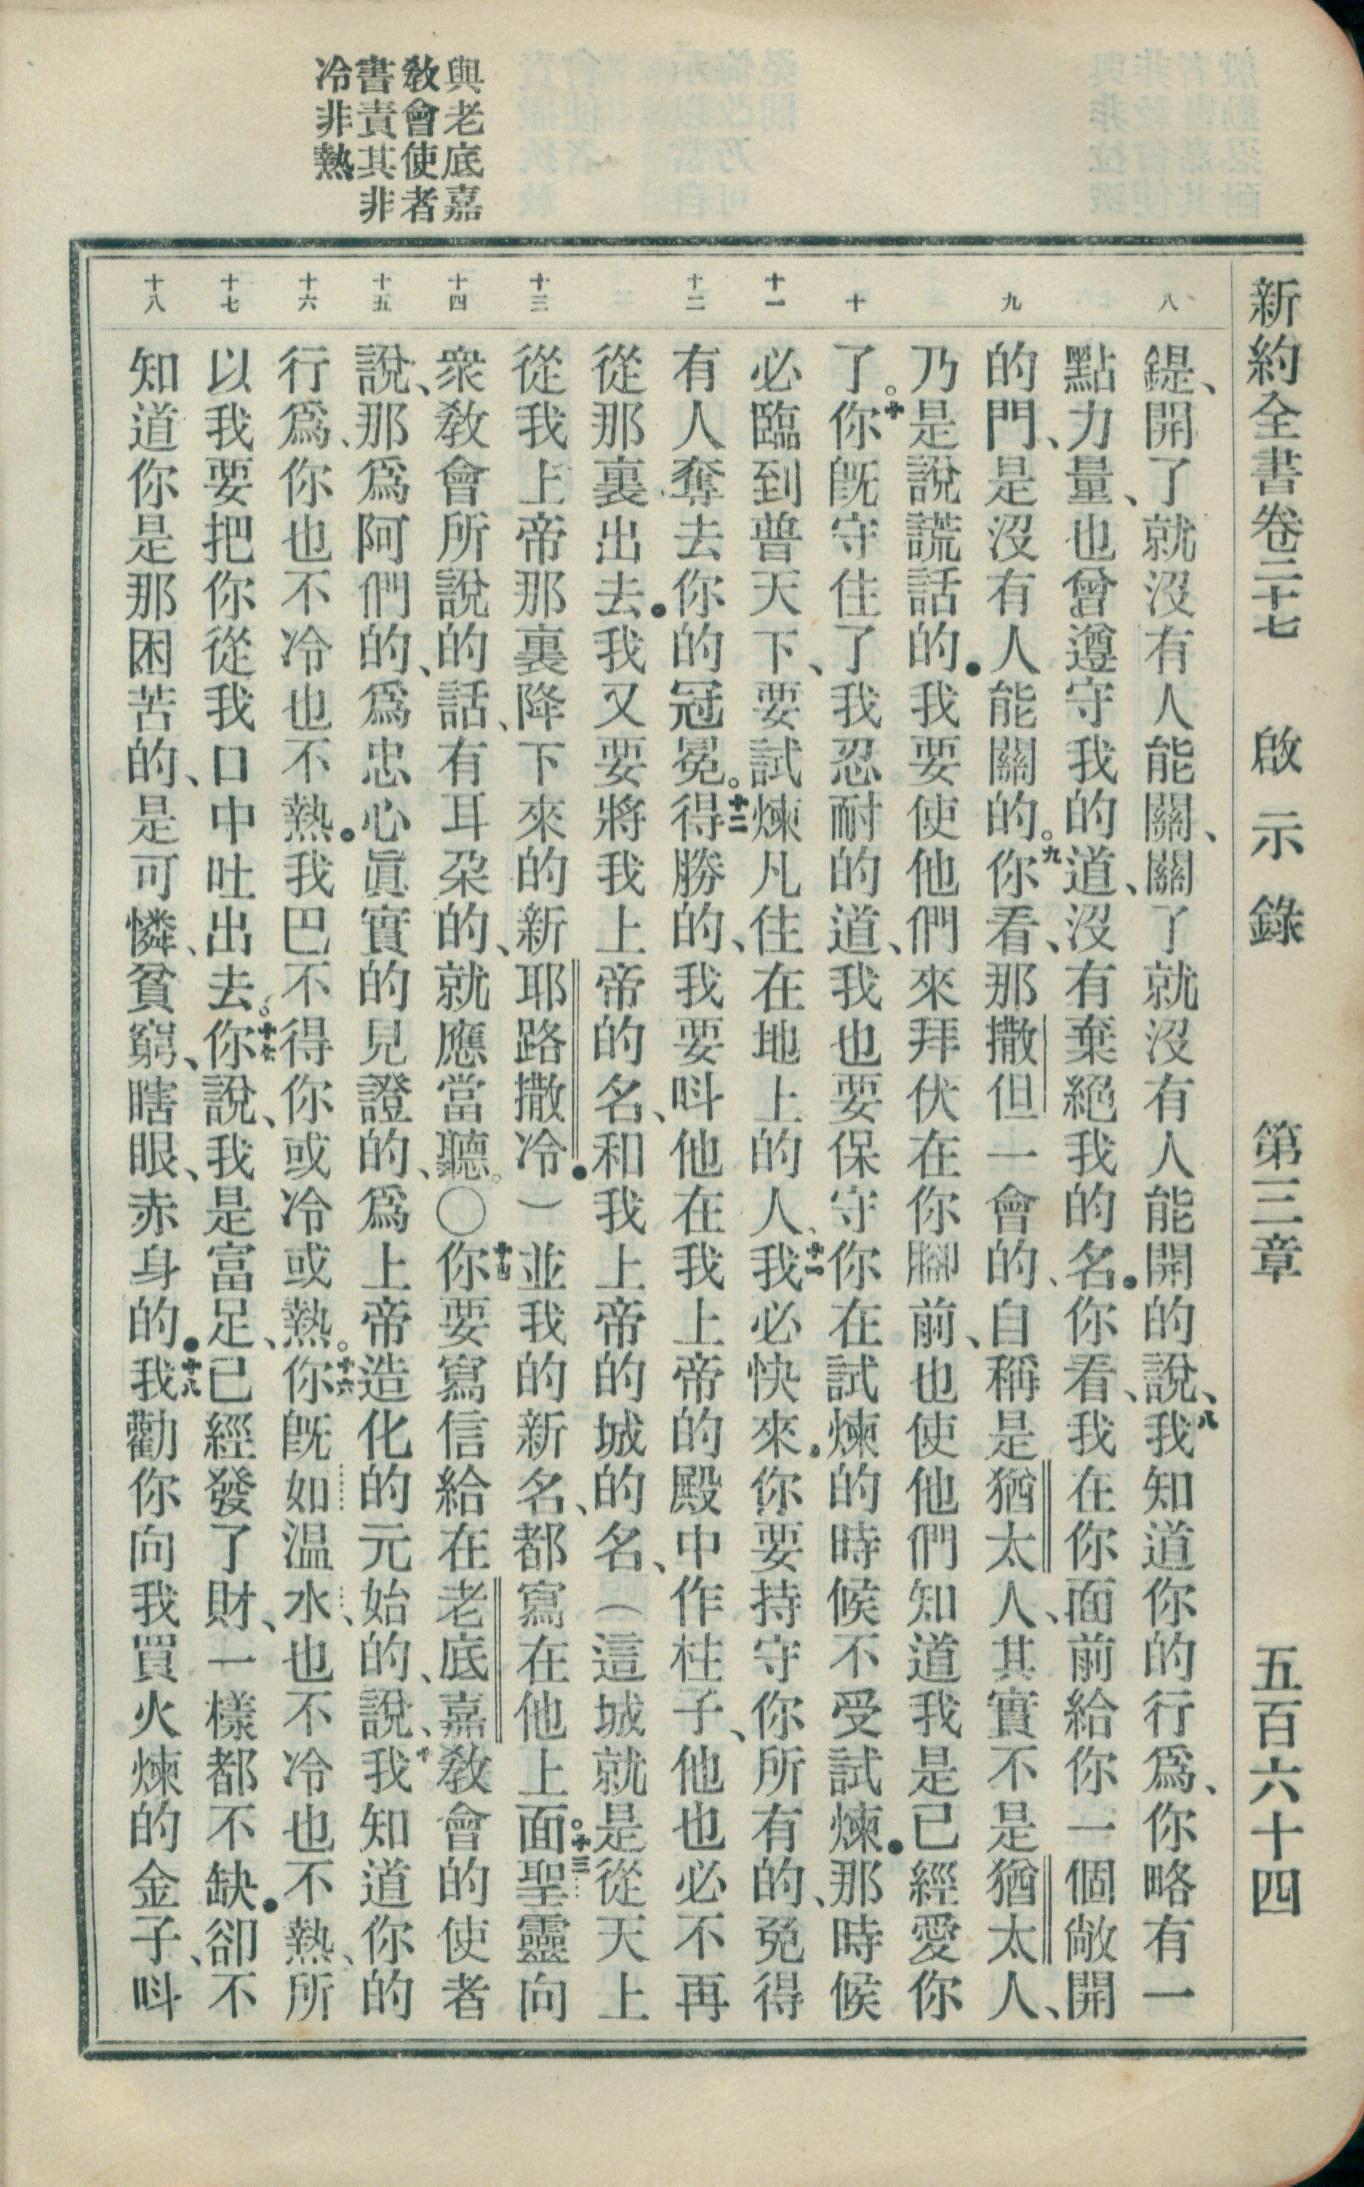 新約全書卷二十七 啟示錄 第三章 五百六十四
與老底嘉
教會使者
書責其非
冷非熱
八 九 十 十一 十二 十三 十四 十五 十六 十七 十八
鍉、開了就沒有人能關、關了就沒有人能開的說、八我知道你的行爲、你略有一
點力量、也曾遵守我的道、沒有棄絕我的名．你看、我在你面前給你一個敞開
的門、是沒有人能關的。九你看、那撒但一會的、自稱是猶太人、其實不是猶太人、
乃是說謊話的．我要使他們來拜伏在你腳前、也使他們知道我是已經愛你
了。十你旣守住了我忍耐的道、我也要保守你在試煉的時候不受試煉．那時候
必臨到普天下、要試煉凡住在地上的人、十一我必快來．你要持守你所有的、免得
有人奪去你的冠冕。十二得勝的、我要呌他在我上帝的殿中作柱子、他也必不再
從那裏出去．我又要將我上帝的名、和我上帝的城的名、（這城就是從天上
從我上帝那裏降下來的新耶路撒冷．）並我的新名、都寫在他上面。十三聖靈向
衆教會所說的話、有耳朶的、就應當聽。○十四你要寫信給在老底嘉教會的使者
說、那爲阿們的、爲忠心眞實的見證的、爲上帝造化的元始的、說、我知道你的
行爲、你也不冷也不熱．我巴不得你或冷或熱。十六你旣如温水、也不冷也不熱、所
以我要把你從我口中吐出去。十七你說、我是富足、已經發了財、一樣都不缺．卻不
知道你是那困苦的、是可憐、貧窮、瞎眼、赤身的．十八我勸你向我買火煉的金子、呌